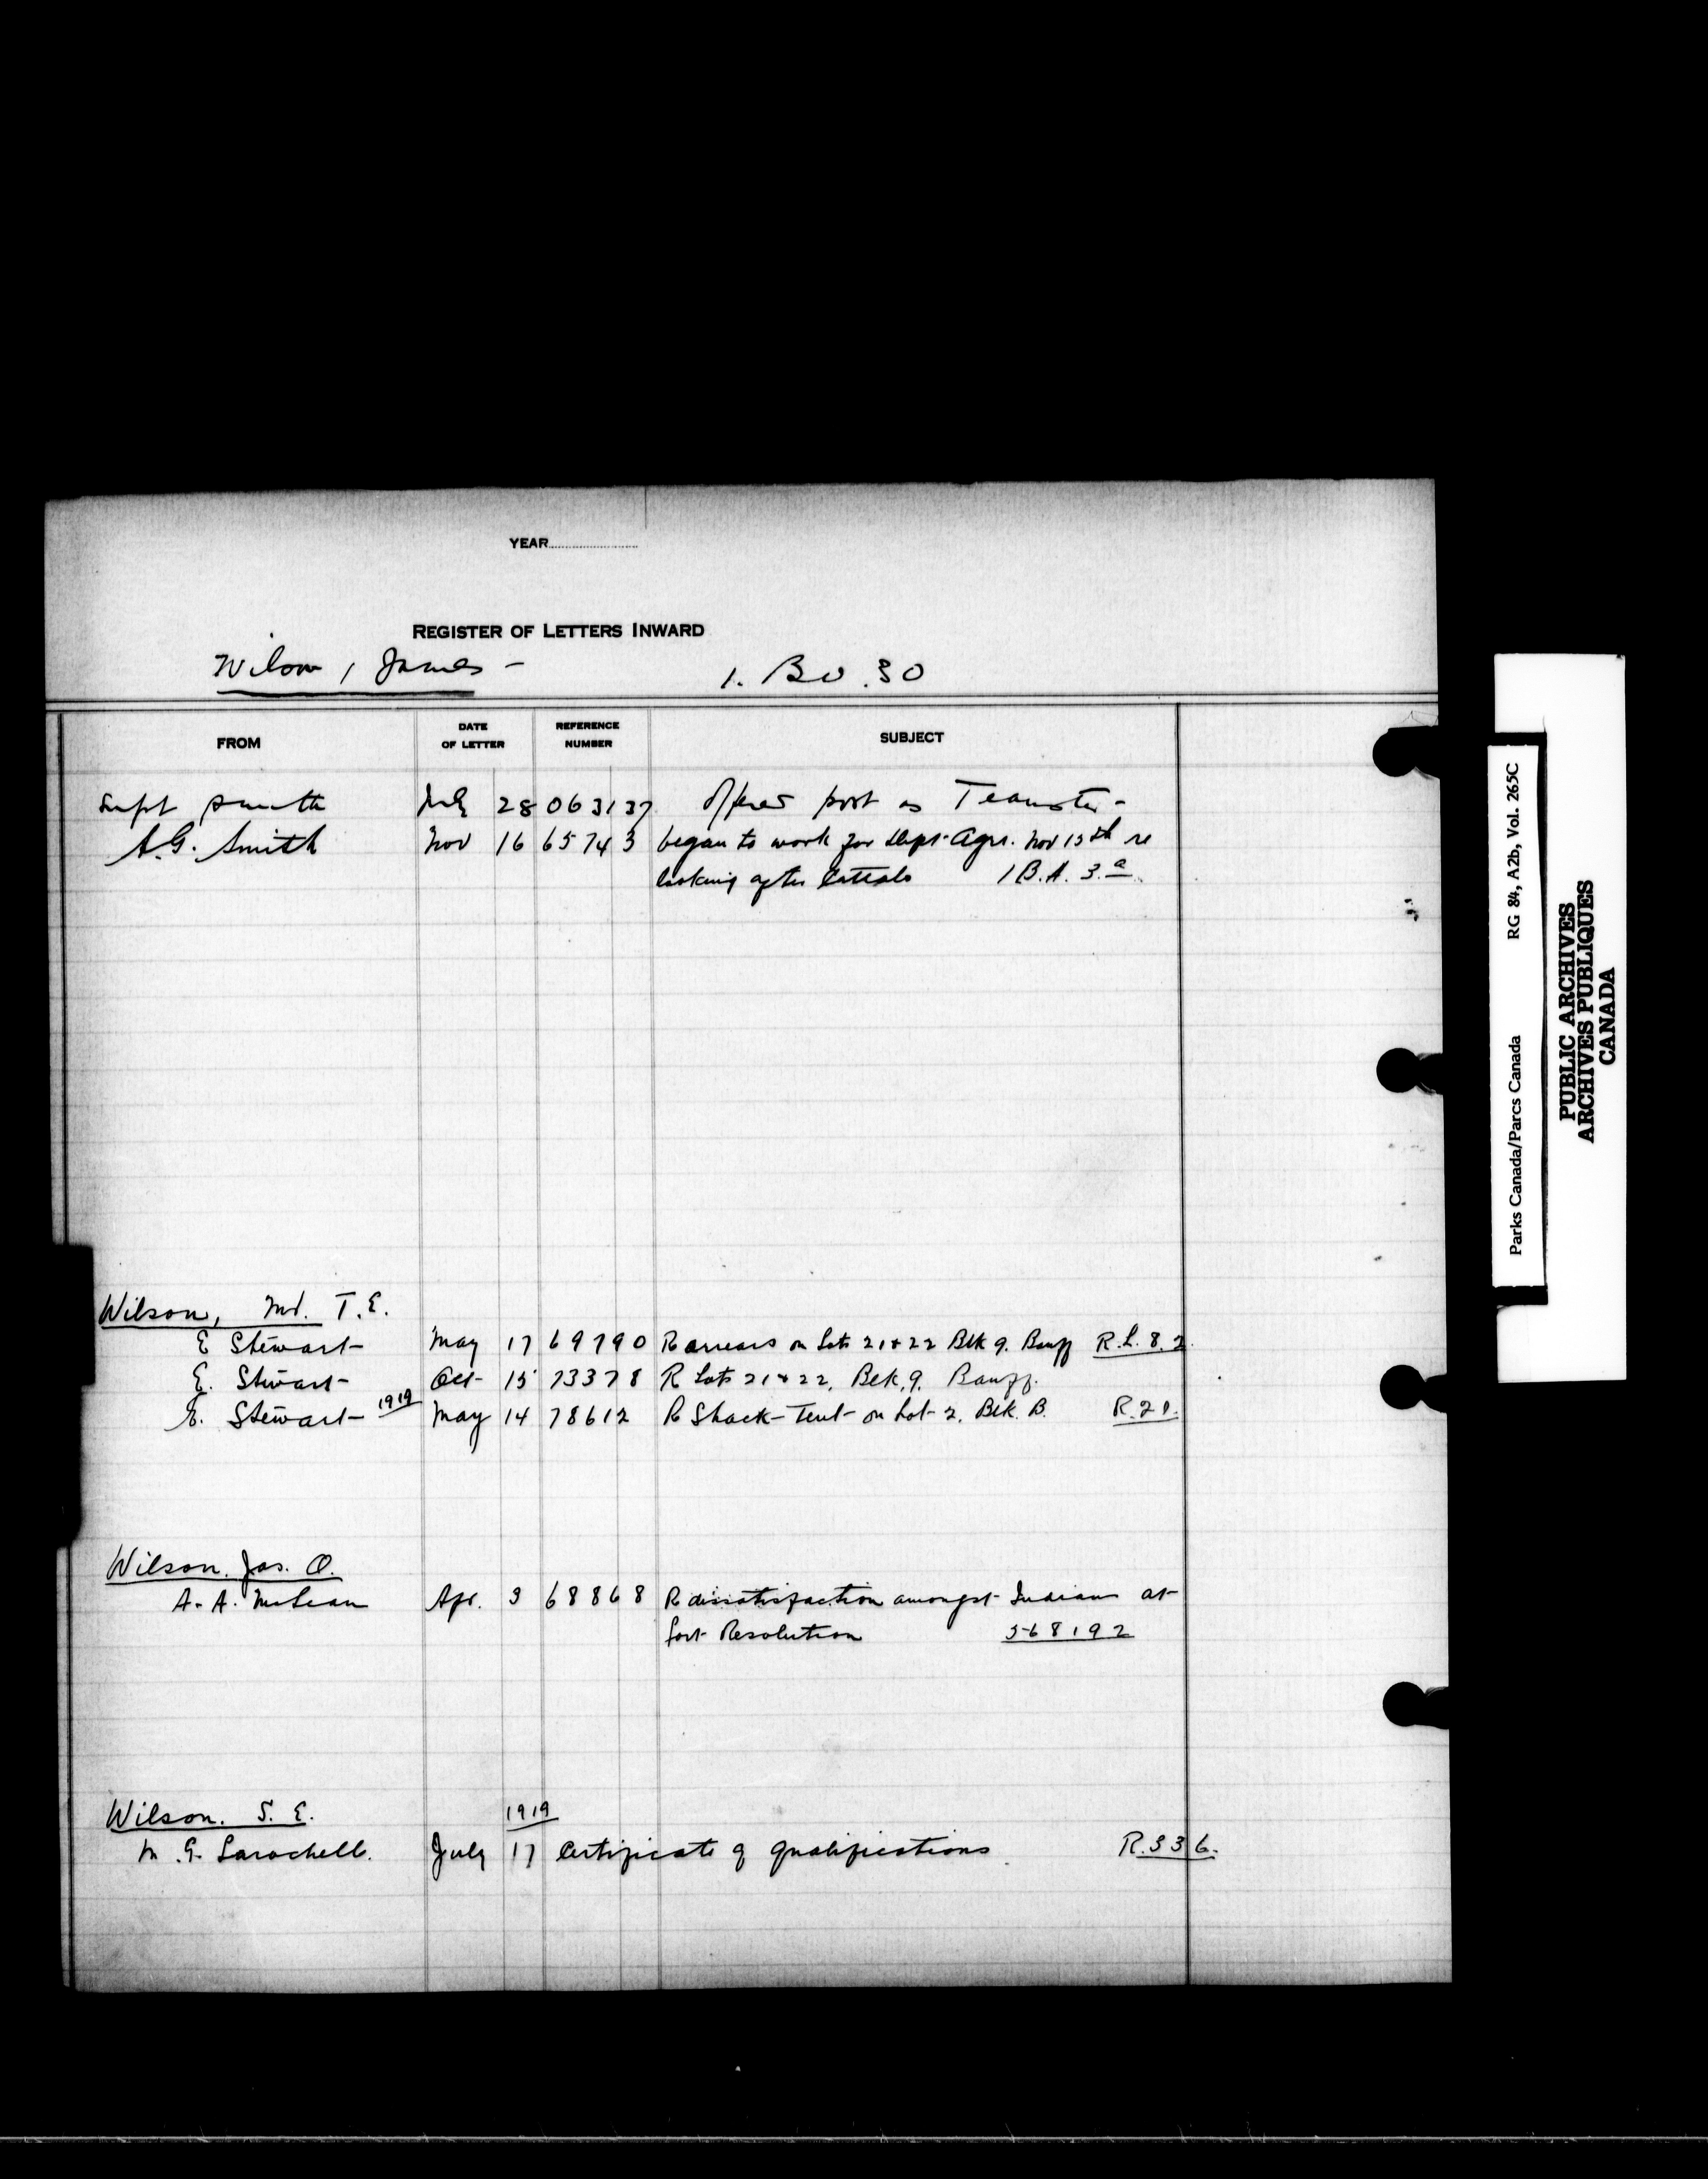 YEAR
REGISTER OF LETTERS INWARD
Wilson, James - 1. BU. 30
FROM DATE OF LETTER REFERENCE NUMBER SUBJECT
Supt Smith July 28 063137 Offered post as Teamster -
A.G. Smith Nov 16 65743 began to work for Dept. Agri. Nov 15th re
looking after Cattalo 1 B.A. 3.a
Wilson, T.E.
E Stewart May 17 69790 R arrears on Lots 21 & 22 Blk 9. Banff R.L. 8.2.
E. Stewart Oct 15 73378 R Lots 21 & 22, Blk. 9. Banff.
E. Stewart 1919 May 14 78612 R Shack-Tent on Lot 2. Blk. B. R.21.
Wilson. Jas. O.
A. A. McLean Apr. 3 68868 R dissatisfaction amongst Indians at
Fort Resolution 568192
Wilson. S. E. 1919
M. G. Larochelle. July 17 Certificate of Qualifications R.336.
Parks Canada/Parcs Canada RG 84, A2b, Vol. 265C
PUBLIC ARCHIVES
ARCHIVES PUBLIQUES
CANADA